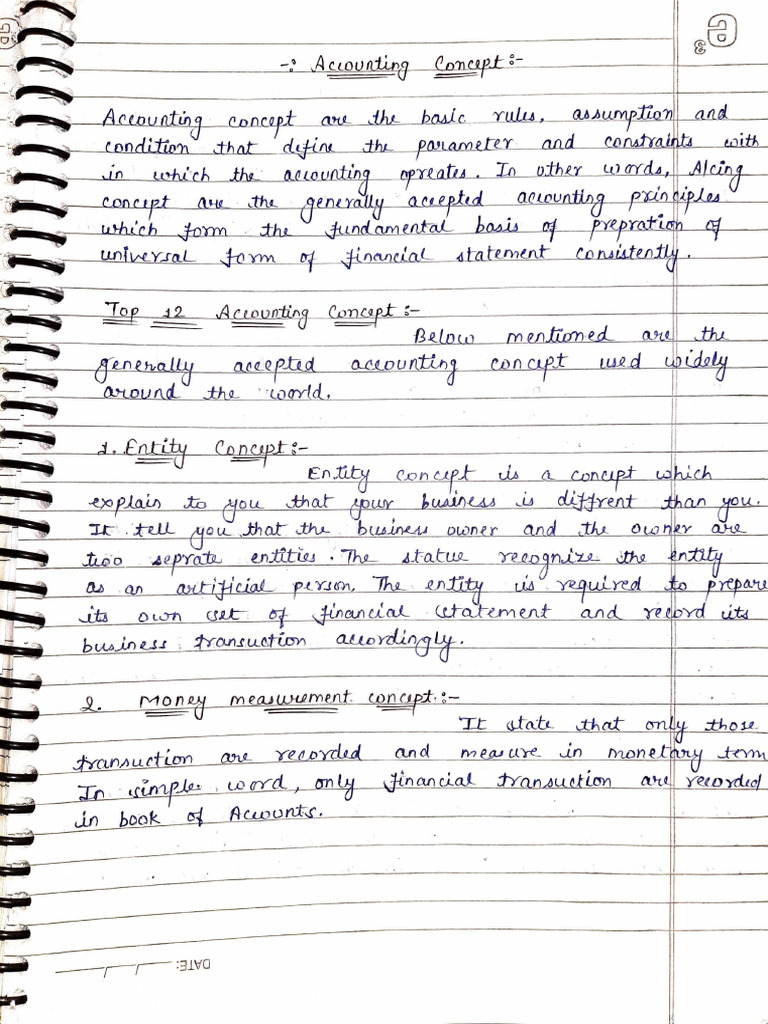 -: Accounting Concept:-
Accounting concept are the basic rules, assumption and
condition that define the parameter and constraints with
in which the accounting opreates. In other words, A/cing
concept are the generally accepted accounting principles
which form the fundamental basis of prepration of
universal form of financial statement consistently.
Top 12 Accounting Concept:-
Below mentioned are the
generally accepted accounting concept used widely
around the world.
1. Entity Concept:-
Entity concept is a concept which
explain to you that your business is diffrent than you.
It tell you that the business owner and the owner are
two seprate entities. The statue recognize the entity
as an artificial person. The entity is required to prepare
its own set of financial statement and record its
business transuction accordingly.
2. Money measurement concept:-
It state that only those
transuction are recorded and measure in monetary term
In simple word, only financial transuction are recorded
in book of Accounts.
DATE: